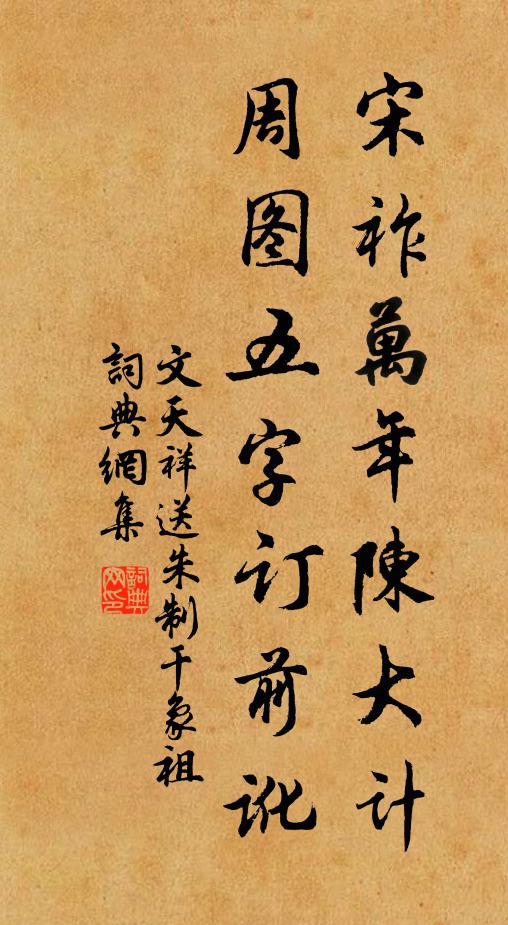 宋祚萬年陳大计
周图五字订前讹
文天祥送朱制干象祖
詞典網集
詞典网印